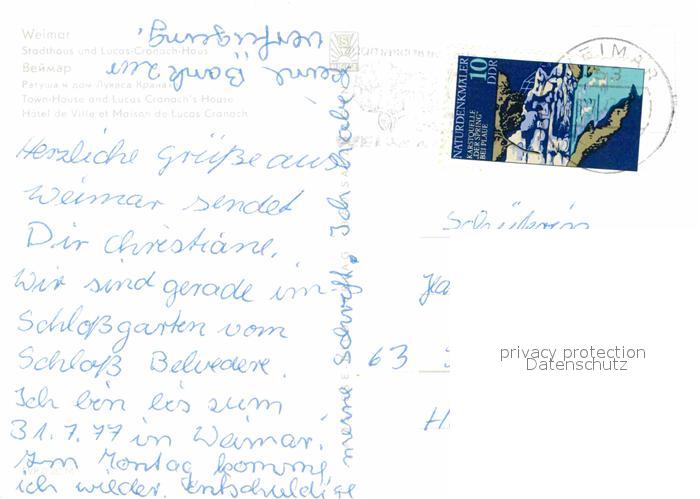 Weimar
Stadthaus und Lucas-Cranach-Haus
Веймар
Ратуша и дом Лукаса Кранаха
Town-House and Lucas Cranach's House
Hôtel de Ville et Maison de Lucas Cranach
Herzliche Grüße aus
Weimar sendet
Dir Christiane.
Wir sind gerade im
Schloßgarten vom
Schloß Belvedere.
Ich bin bis zum
31.7.77 in Weimar.
Am Montag komme
ich wieder. Entschuldige
meine Schrift, Ich habe
keine Bank zur
verfügung.
NATURDENKMÄLER
10
DDR
KARSTQUELLE
„DER SPRING“
BEI PLAUE
EIMAR
Schülerin
63
privacy protection
Datenschutz